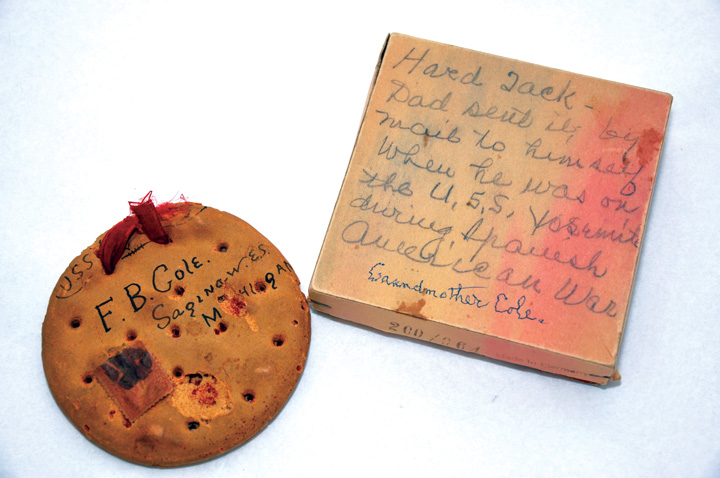 USS
F. B. Cole.
Saginaw. E.S.
Hard Tack -
Dad sent it by
mail to himself
When he was on
the U.S.S. Yosemite
during Spanish
American War
Grandmother Cole.